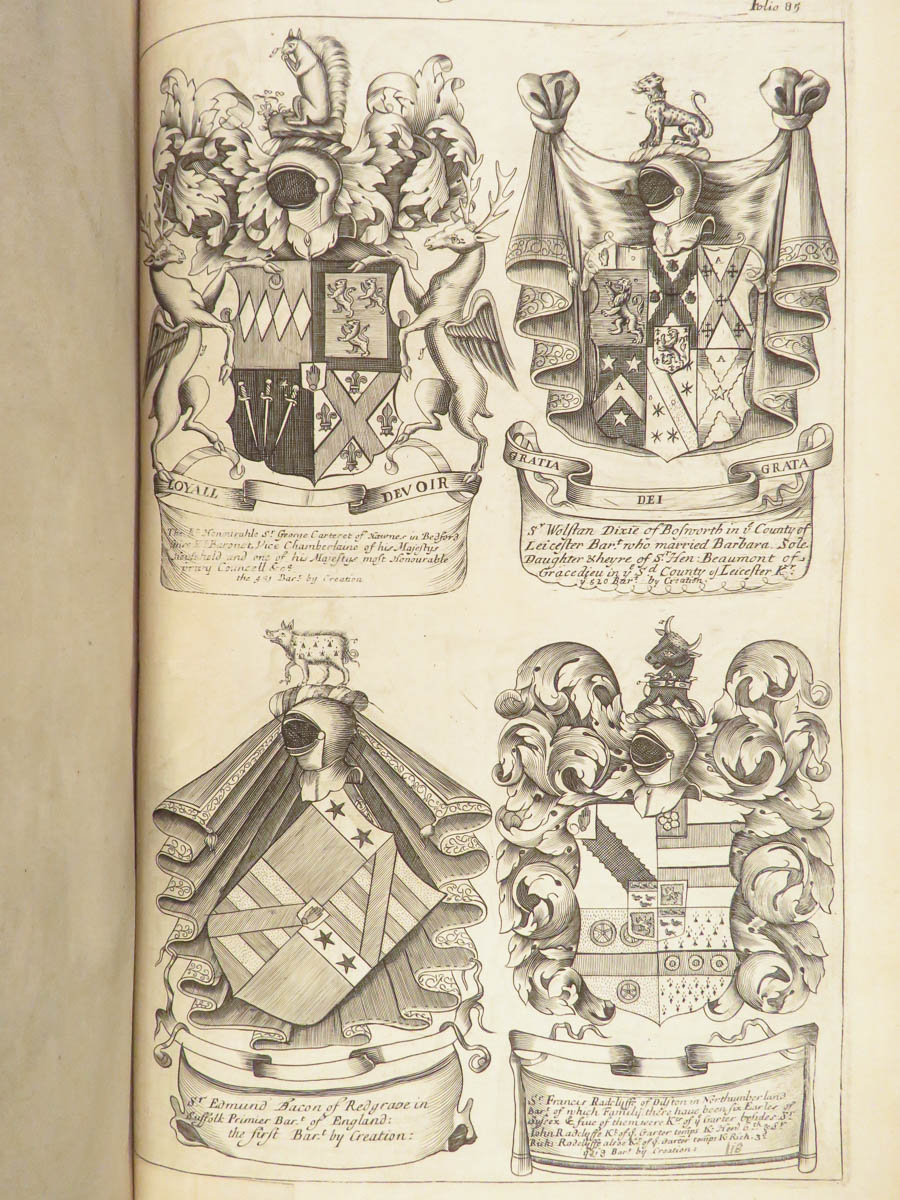 Folio 85
LOYALL DEVOIR
The Rt Honourable Sr. George Carteret of Hawnes in Bedford
Baronet Vice Chamberlaine of his Majestys
Houshold and one of his Majestys most Honourable
privy Councell &ca
the Bart. by Creation
GRATIA DEI GRATA
A
A
A
A
Sr Wolstan Dixie of Bosworth in ye County of
Leicester Bart. who married Barbara Sole
Daughter & heyre of Sr Hen: Beaumont of
Gracedieu in ye Sd County of Leicester Kt.
ye 520 Bart by Creation
Sr Edmund Bacon of Redgrave in
Suffolk Primier Bart. of England:
the first Bart. by Creation:
Sr Francis Radclyffe of Dilston in Northumberland
Bart. of which Family there have been six Earles of
Sussex & fiue of them were Kts of ye Garter besides Sr.
Iohn Radclyffe Kt. of ye Garter temps K: Hen: 6th & Sr
Rich: Radclyffe also Kt. of ye Garter temps K: Rich: 3d
Bart by Creation:
118